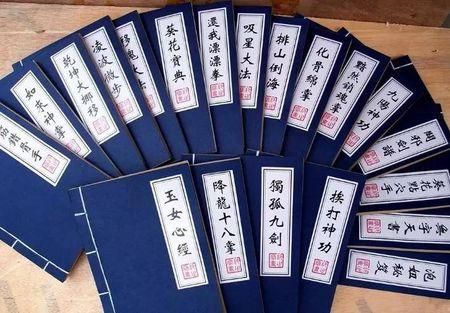 筋鎖骨手
如來神掌
乾坤大挪移
淩波微步
移魂大法
葵花寶典
還我漂漂拳
吸星大法
排山倒海
化骨綿掌
黯然銷魂掌
九陽神功
闢邪劍譜
葵花點穴手
無字天書
泡妞秘笈
玉女心經
降龍十八掌
獨孤九劍
挨打神功